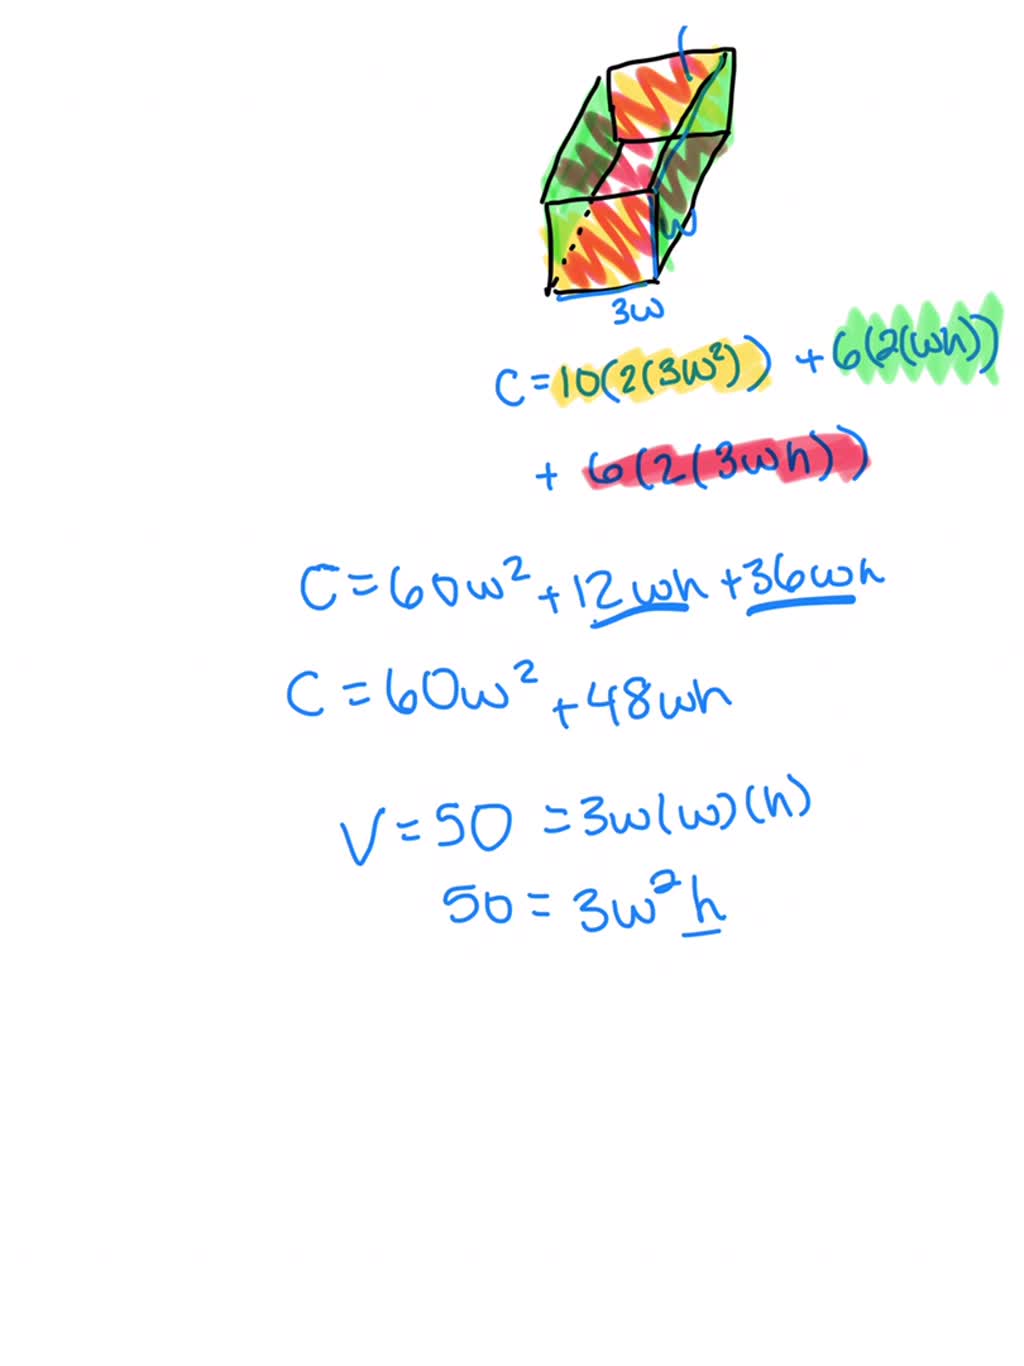 w
3w
C = 10(2(3w²)) + 6(2(wh))
+ 6(2(3wh))
C = 60w² + 12wh + 36wh
C = 60w² + 48wh
V = 50 = 3w(w)(h)
50 = 3w²h